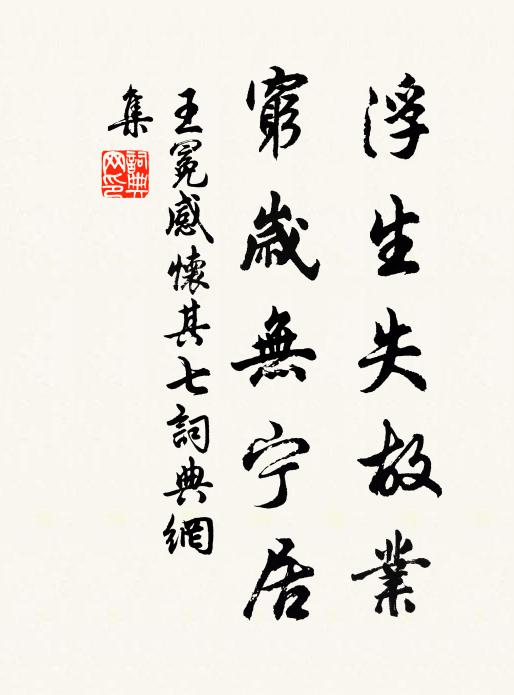 浮生失故業
窮歲無宁居
王冕感懷其七詞典網
集
詞典
网印